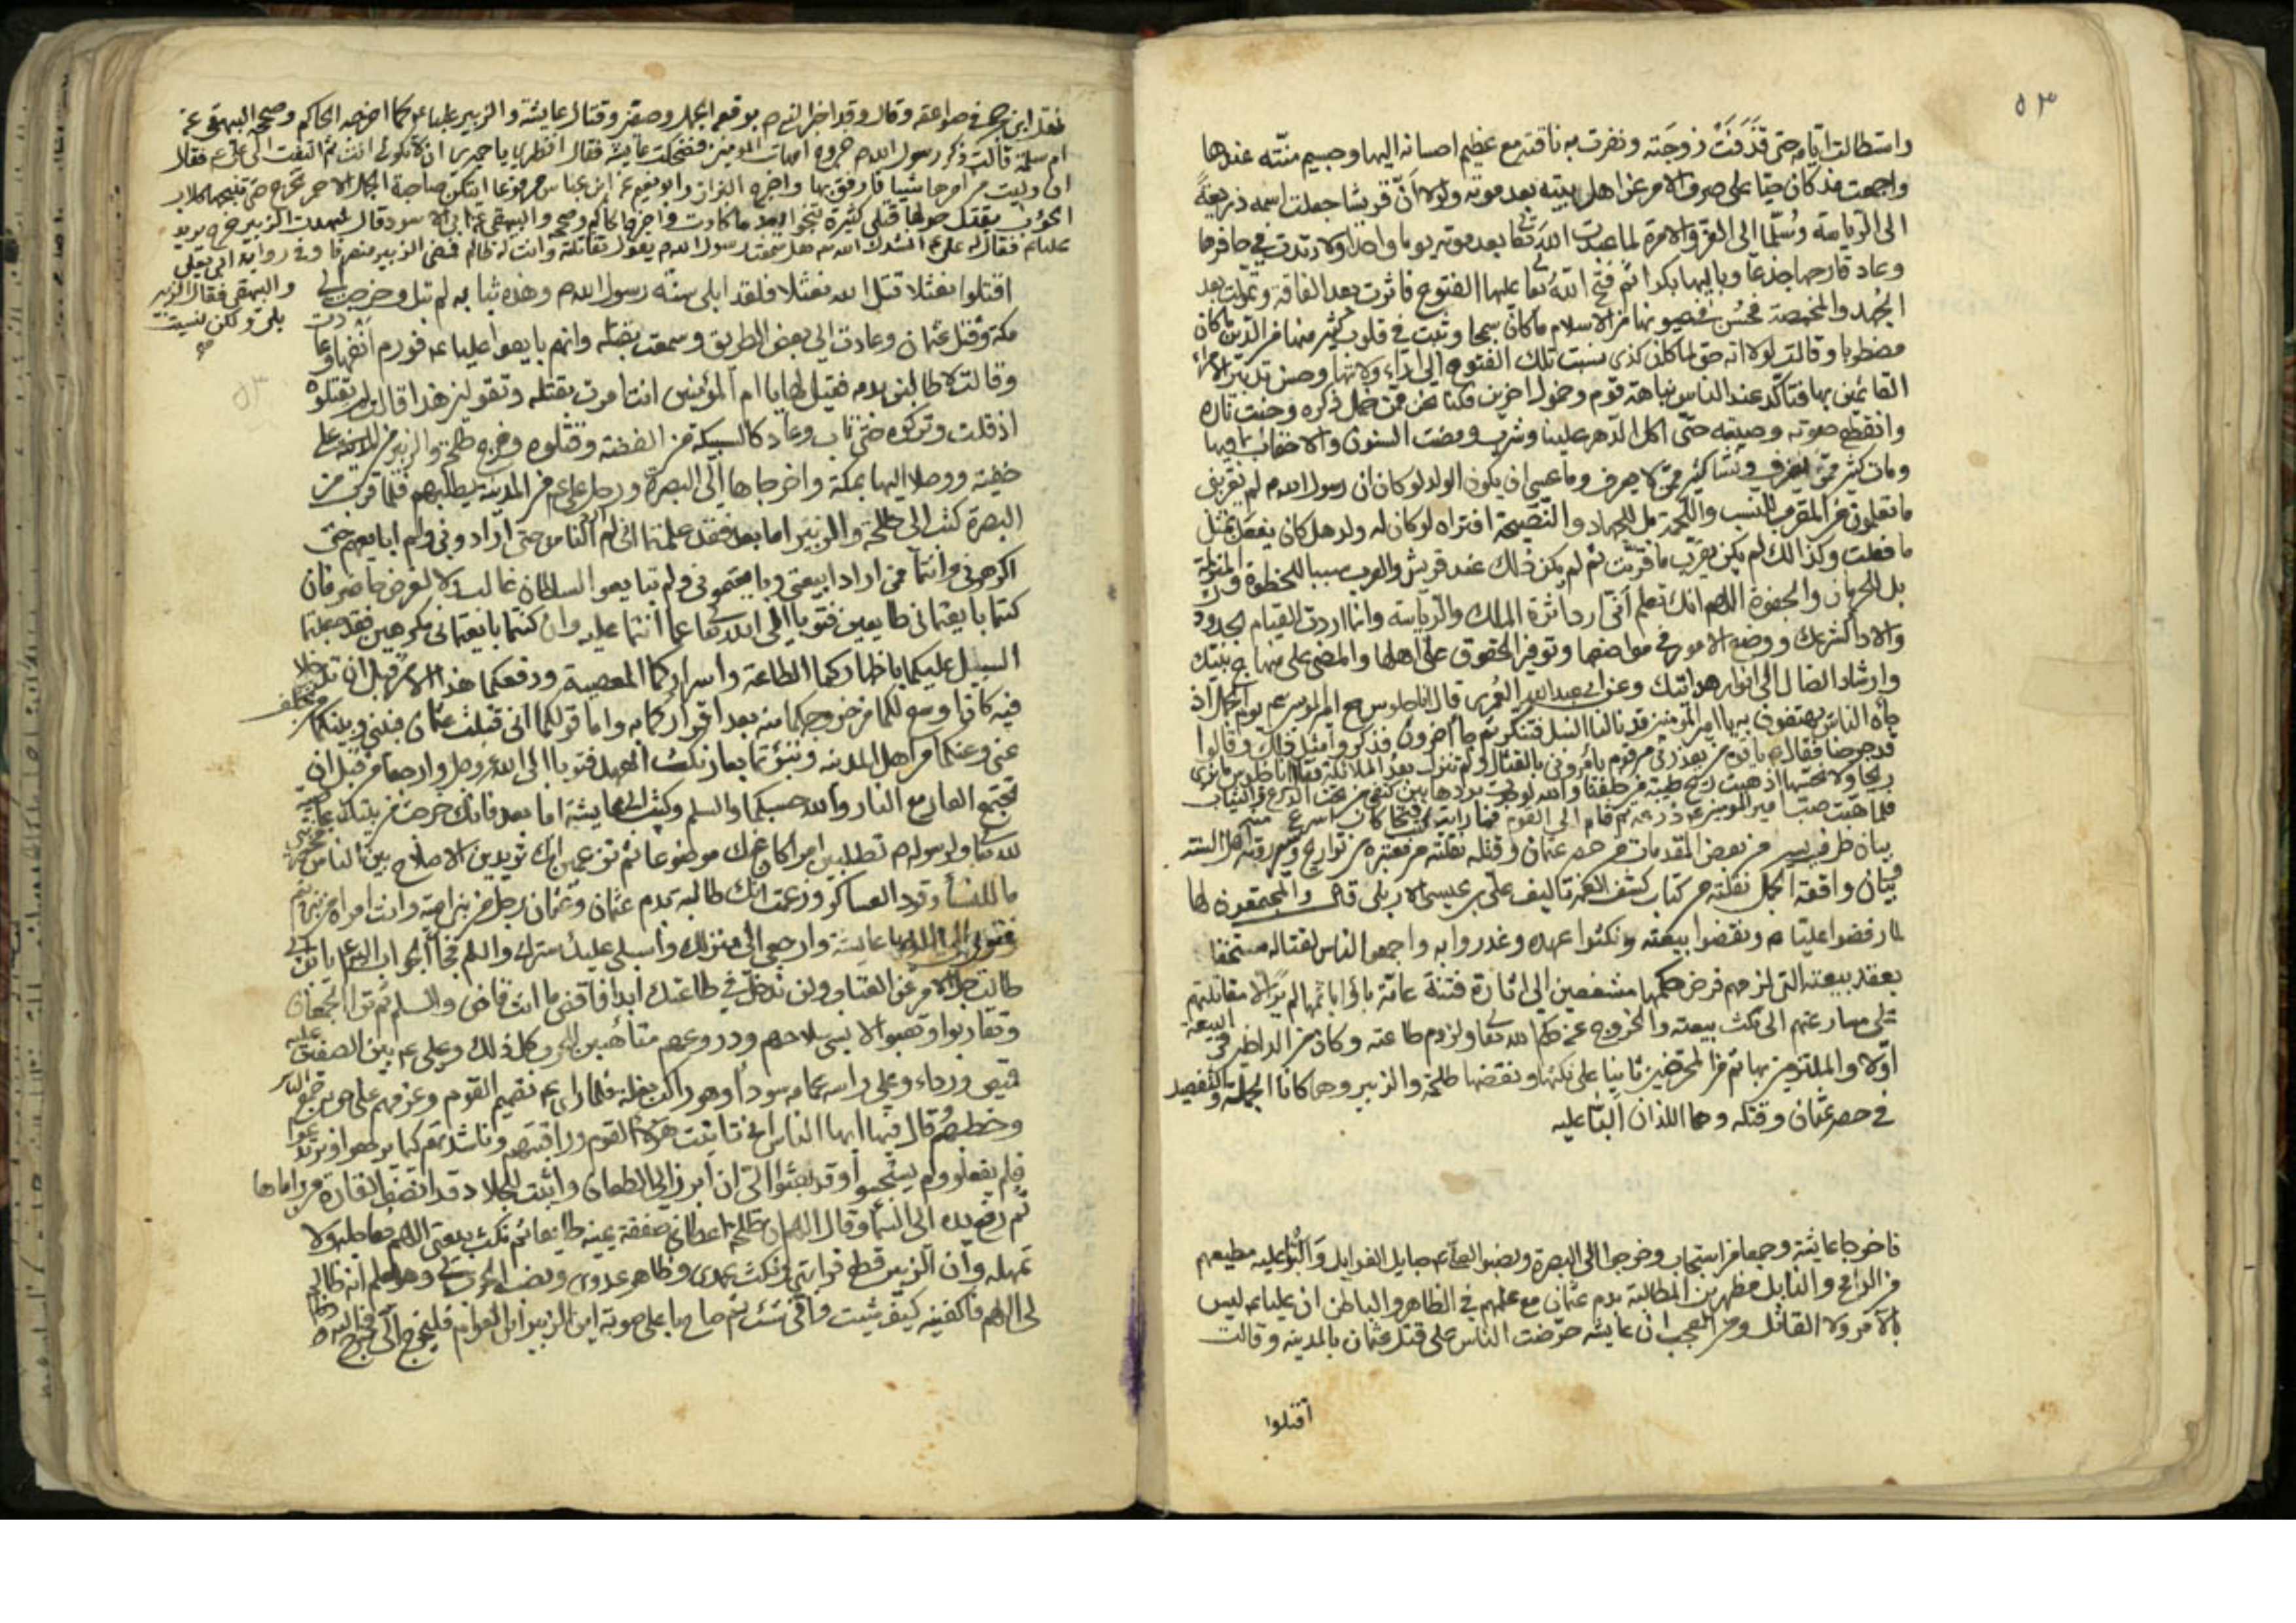 ٥٣
واستطالت ايامه حتى قذفت زوجته ونفرت به ناقته مع عظيم احسانه اليها وجسيم منته عندها
واجمعت مذ كان حيا على صرف الامر عن اهل بيته بعد موته ولولا ان قريشا جعلت اسمه ذريعة
الى الرياسة وسلما الى العز والامرة لما عبدت الله تعا بعد موته يوما واحدا ولارتدت في حافرها
وعاد قارحها جذعا وبازلها بكرا ثم فتح الله تعا عليها الفتوح فاثرت بعد الفاقة وتمولت بعد
الجهد والمخمصة فحسن في عيونها من الاسلام ما كان سمجا وثبت في قلوب كثير منها من الدين ما كان
مضطربا وقالت لولا انه حق لما كان كذى نسبت تلك الفتوح الى اراء ولاتها وحسن تدبير الامراء
القائمين بها فتاكد عند الناس نباهة قوم وخمول اخرين فكنا نحن ممن خمل ذكره وخبت ناره
وانقطع صوته وصيته حتى اكل الدهر علينا وشرب ومضت السنون والاحقاب بما فيها
ومات كثير ممن يعرف ونشا كثير ممن لا يعرف وما عسى ان يكون الولد لو كان ان رسول الله ص لم يقربني
ما تعلمونه من القرب للنسب واللحمة بل للجهاد والنصيحة افتراه لو كان له ولد هل كان يفعل مثل
ما فعلت وكذالك لم يكن يقرب ما قربت ثم لم يكن ذلك عند قريش والعرب سببا للحظوة والمنزلة
بل للحرمان والجفوة اللهم انك تعلم انى لم ارد الامرة ولا علو الملك والرياسة وانما اردت القيام بحدودك
والاداء لشرعك ووضع الامور في مواضعها وتوفير الحقوق على اهلها والمضى على منهاج نبيك
وارشاد الضال الى انوار هدايتك وعن ابي عبد الله العنزى قال انا لجلوس مع امير المؤمنين ع يوم الجمل اذ
جاءه الناس يهتفون به يا امير المؤمنين قد نالنا النبل فتنكر ثم جاء اخرون فذكروا مثل ذلك وقالوا
قد جرحنا فقال ع يا قوم من يعذرنى من قوم يامرونى بالقتال ولم تنزل بعد الملائكة فقال انا لجلوس ما نرى
ريحا ولا نحسها اذ هبت ريح طيبة من خلفنا والله لوجدت بردها بين كتفي من تحت الدرع والثياب
فلما هبت صب امير المؤمنين ع درعه ثم قام الى القوم فما رايت فتحا كان اسرع منه
بيان طرف يسير من بعض المقدمات من حصر عثمان وقتله نقلته من معتبرة من تواريخ اهل السنة
فبيان واقعة الجمل نقلته من كتاب كشف الغمة تاليف على بن عيسى الاربلى قال والمجتمعون لها
لما رفضوا عليا م ونقضوا بيعته ونكثوا عهده وغدروا به واجمعوا الناس لقتاله مستخفا
بعقد بيعته التي لزمهم فرض حكمها مشفعين الى اثارة فتنة عامة باؤا باثمها لم ير الا مقاتلتهم
على مسارعتهم الى نكث بيعته والخروج عن حكم الله تعا ولزوم طاعته وكان من الداخلين في البيعة
اولا والملتزمين بها ثم من المحرضين ثانيا على نكثها ونقضها طلحة والزبير وهما كانا الجملة والتفصيل
في حصر عثمان وقتله وهما اللذان البا عليه
فاخرجا عايشة وجمعا من استجاب وخرجوا الى البصرة ونصبوا لعلى ع حبايل الغوايل والبوا عليه مطيعهم
من الرامح والنابل مظهرين المطالبة بدم عثمان مع علمهم في الظاهر والباطن ان عليا ع ليس
بالامر ولا القاتل ومن العجب ان عايشه حرضت الناس على قتل عثمان بالمدينه وقالت
اقتلوا
نقل ابن حجر في صواعقه وقال وقد اخبر النبي ص بوقعة الجمل وصفين وقتال عايشة والزبير عليا ع كما اخرجه الحاكم وصححه البيهقى عن
ام سلمة قالت ذكر رسول الله ص خروج امهات المؤمنين فضحكت عايشة فقال انظري يا حميراء ان لا تكونى انت ثم التفت الى على ع فقال
ان وليت من امرها شيئا فارفق بها واخرج البزار وابو نعيم عن ابن عباس مرفوعا ايتكن صاحبة الجمل الاحمر تخرج حتى تنبحها كلاب
الحوئب يقتل حولها قتلى كثيرة تنجو بعد ما كادت واخرج الحاكم وصححه والبيهقى عن ابى الاسود قال شهدت الزبير خرج يريد
عليا ع فقال له على ع انشدك الله هل سمعت رسول الله ص يقول تقاتله وانت له ظالم فمضى الزبير منصرفا وفى رواية ابى يعلى
والبيهقى فقال الزبير
بلى ولكن نسيت
اقتلوا نعثلا قتل الله نعثلا فلقد ابلى سنة رسول الله ص وهذه ثيابه لم تبل وخرجت الى
مكة وقتل عثمان وعادت الى بعض الطريق وسمعت بقتله وانهم بايعوا عليا ع فورم انفها وعادت
وقالت لاطالبن بدمه فقيل لها يا ام المؤمنين انت امرت بقتله وتقولين هذا قالت لم يقتلوه
اذ قلت وتركوه حتى تاب وعاد كالسبيكة من الفضة وقتلوه وخرج طلحة والزبير من المدينة على
خفية ووصلا اليها بمكة واخرجاها الى البصرة ورحل على ع من المدينة يطلبهم فلما قرب من
البصرة كتب الى طلحة والزبير اما بعد فقد علمتما انى لم ارد الناس حتى ارادونى ولم ابايعهم حتى
اكرهونى وانتما ممن ارادا بيعتى وبايعتمونى ولم تبايعوا السلطان غالب ولا لعرض حاضر فان
كنتما بايعتمانى طايعين فتوبا الى الله تعا عما انتما عليه وان كنتما بايعتمانى مكرهين فقد جعلتما
السبيل عليكما باظهاركما الطاعة واسراركما المعصية ودفعكما هذا الامر قبل ان تدخلا
فيه كان اوسع لكما من خروجكما منه بعد اقراركما به واما قولكما انى قتلت عثمان فبينى وبينكما من تخلف
عنى وعنكما من اهل المدينه ونبؤتما بعار نكث العهد فتوبا الى الله عز وجل وارجعا من قبل ان
تجتمع العار مع النار والله حسبكما والسلم وكتب الى عايشة اما بعد فانك خرجت من بيتك عاصية
لله تعا ولرسوله ص تطلبين امرا كان عنك موضوعا ثم تزعمين انك تريدين الاصلاح بين الناس فخبرينى
ما للنساء وقود العساكر وزعمت انك طالبة بدم عثمان وعثمان رجل من بنى امية وانت امراة من بنى تيم
فتوبى الى الله يا عايشة وارجعى الى منزلك واسبلى عليك سترك والسلم فجاء الجواب اليه يا ابن ابى
طالب جل الامر عن العتاب ولن ندخل في طاعتك ابدا فاقض ما انت قاض والسلم ثم تراء الجمعان
وتقاربوا وتهبوا لابسى سلاحهم ودروعهم متاهبين للحرب وكل ذلك وعلى ع بين الصفين عليه
قميص ورداء وعلى راسه عمامة سوداء وهو راكب بغلة فلما راى ع تصميم القوم وعزمهم على حربه جمع الناس
وخطبهم قال فيها ايها الناس انى تانيت هؤلاء القوم وراقبتهم وناشدتهم كيما يرجعوا ويرتدعوا
فلم يفعلوا ولم يستجيبوا وقد بعثوا الى ان ابرز الى الطعان واثبت للجلاد قد انصف القارة من راماها
ثم رفع يده الى السماء وقال اللهم ان طلحة اعطانى صفقة يمينه طايعا ثم نكث بيعتى اللهم فعاجله ولا
تمهله وان الزبير قطع قرابتى ونكث عهدى وظاهر عدوى ونصب الحرب لى وهو يعلم انه ظالم
لى اللهم فاكفنيه كيف شئت وانى شئت ثم صاح باعلى صوته اين الزبير ابن العوام فليخرج الى فخرج اليه